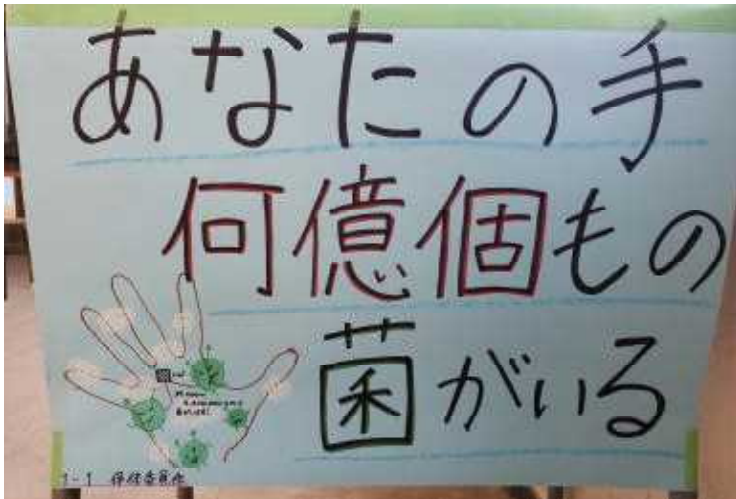 あなたの手
何億個もの
菌がいる
1-1 保健委員他